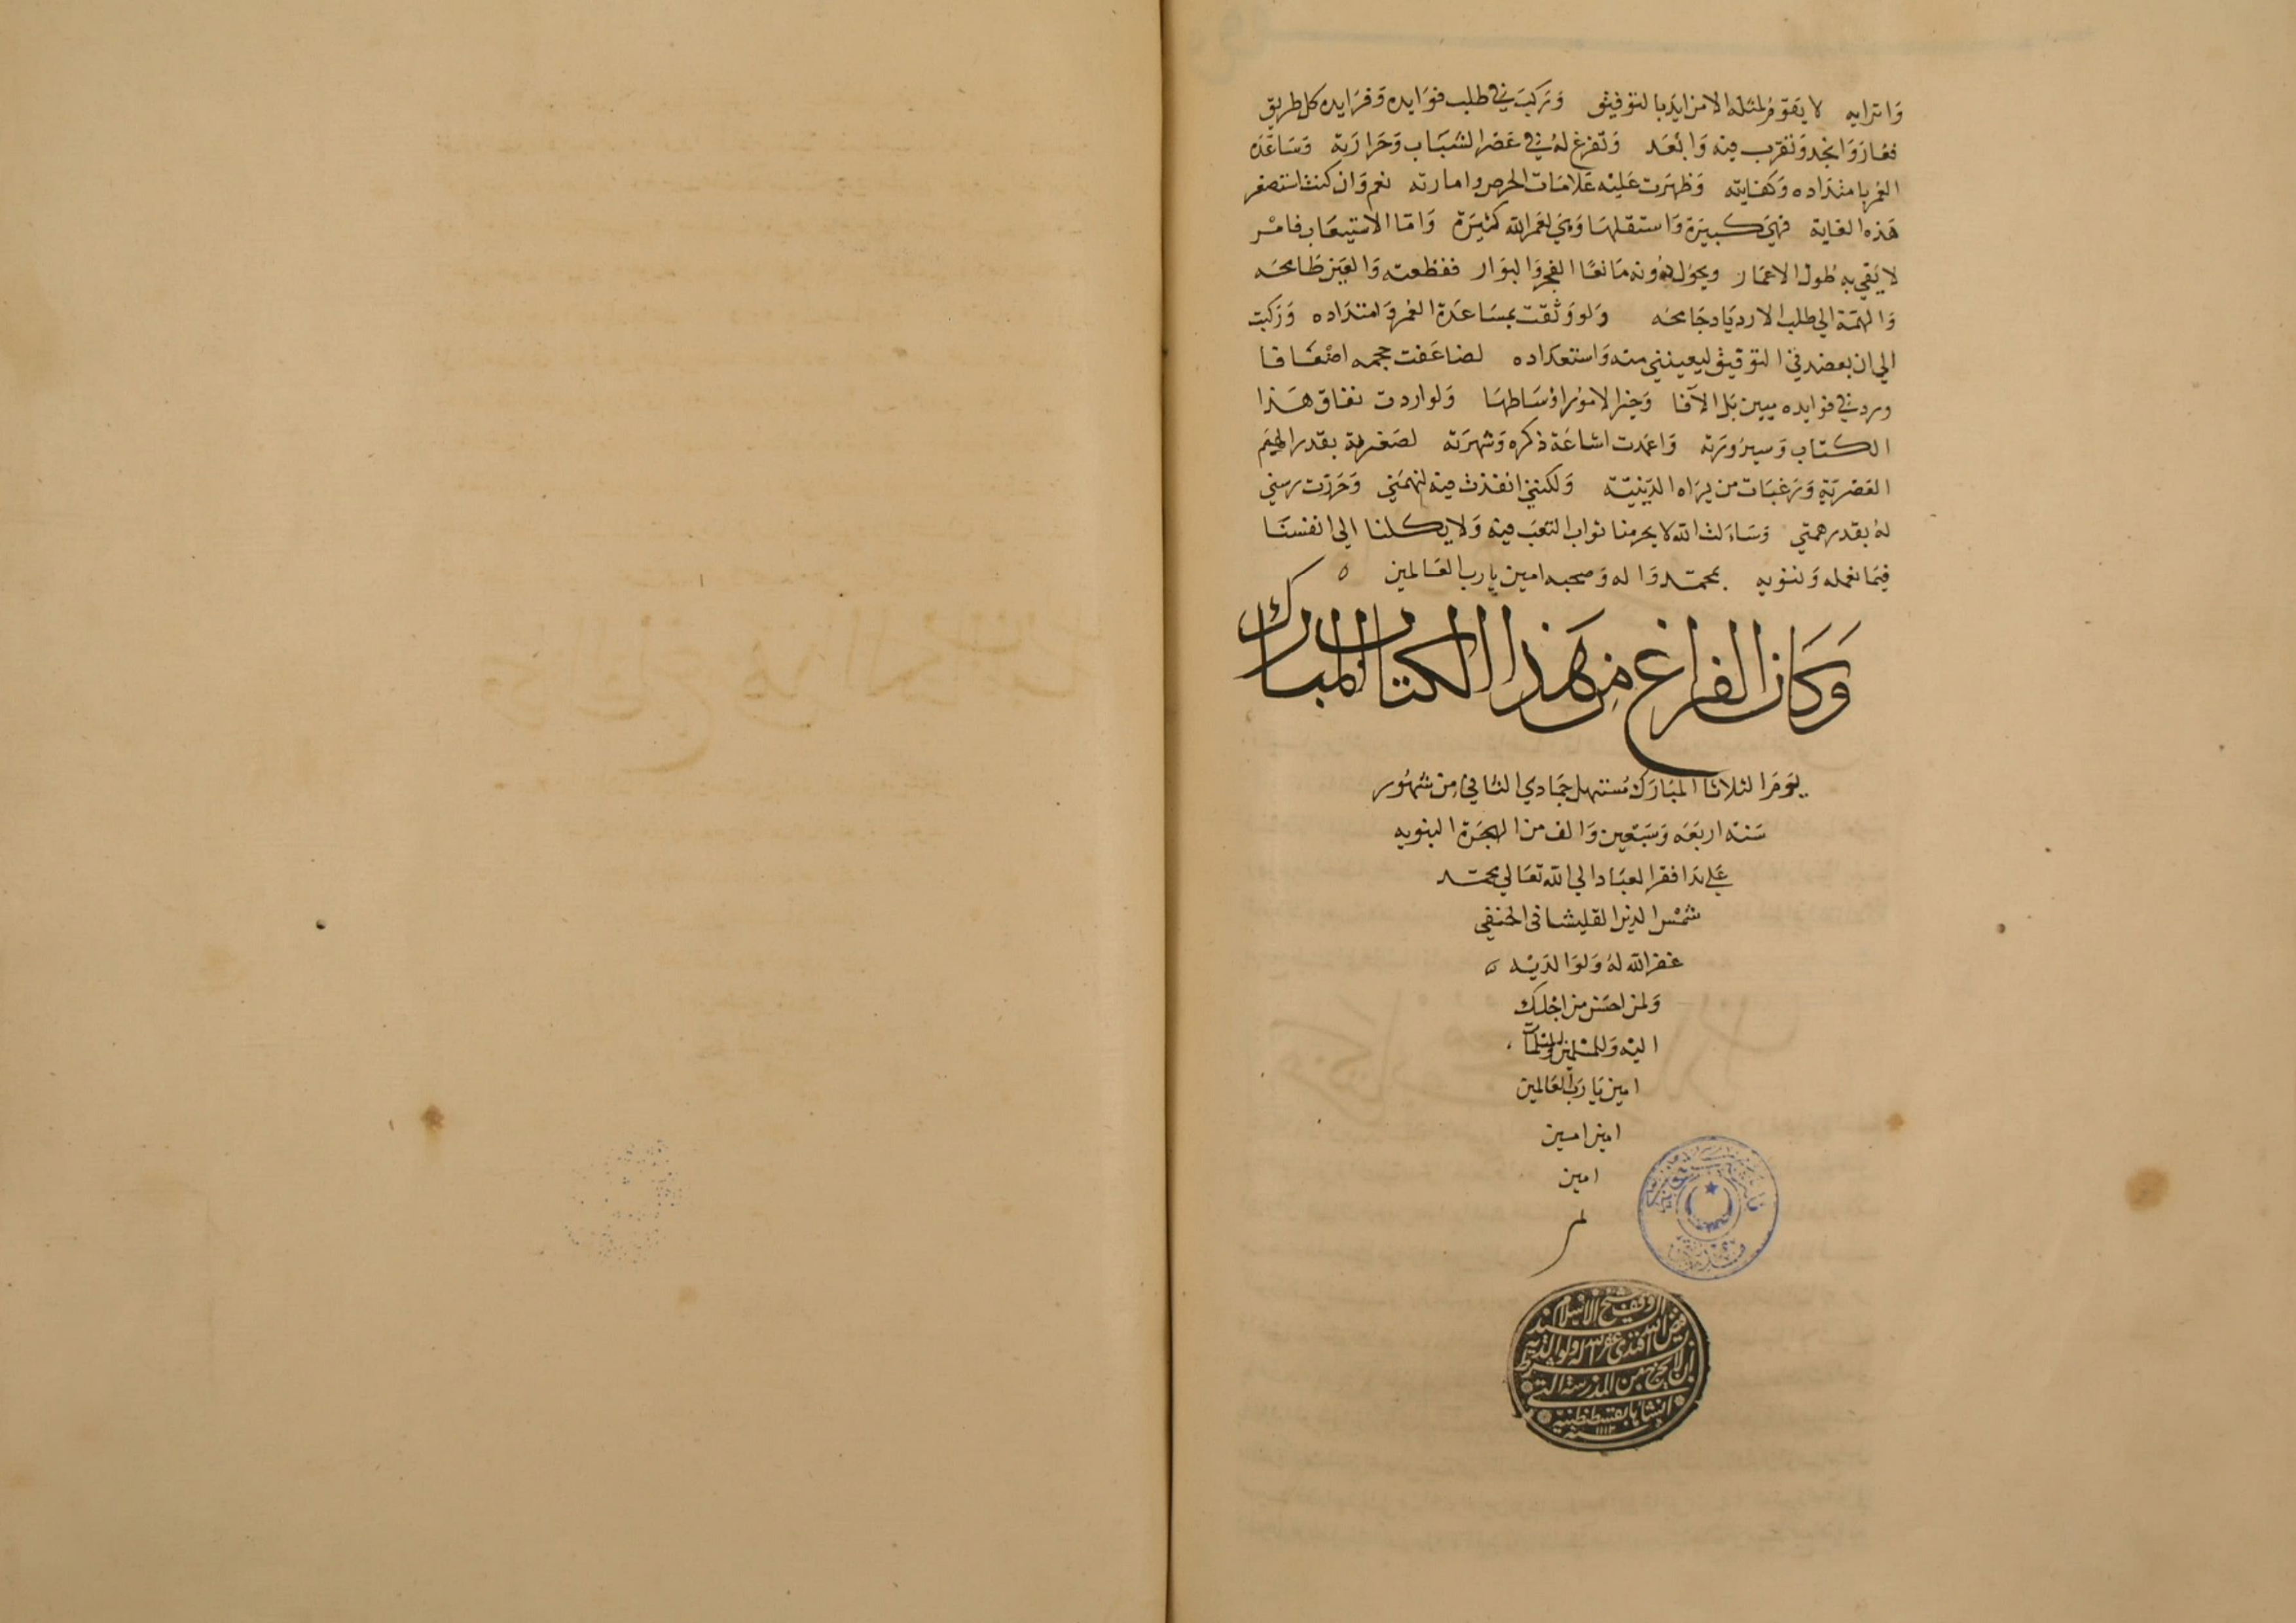 واترابه لا يقوم لمثله الا من ايد بالتوفيق وركب في طلب فوايده وفرايده كل طريق
فغار وانجد وتقرب فيه وابعد وتفرغ له في عصر الشباب وحرارته وساعده
العمر بامتداده وكفايته وظهرت عليه علامات الحرص وامارته نعم وان كنت استصغر
هذه الغاية فهي كبيرة واستقلها وهي لعمر الله كثيرة واما الاستيعاب فامر
لا يفي به طول الاعمار ويحول دونه مانعا العجز والبوار فقطعته والعين طامحه
والهمة الي طلب الازدياد جامحه ولو وثقت بمساعدة العمر وامتداده وركبت
الي ان يعضدني التوفيق ليعينني منه واستعداده لضاعفت حجمه اضعافا
وزدت في فوايده ميين بل الافا وخير الامور اوساطها ولو اردت نفاق هذا
الكتاب وسيرورته واعمدت اشاعة ذكره وشهرته لصغرته بقدر الهمم
العصرية ورغبات من يراه الدينيه ولكنني انفذت فيه نهمتي وجررت رسني
له بقدر همتي وساءلت الله لا يحرمنا ثواب التعب فيه ولا يكلنا الي انفسنا
فيما نعمله وننويه بمحمد واله وصحبه امين يا رب العالمين ه
وكان الفراغ من هذا الكتاب المبارك
يوم الثلاثا المبارك مستهل جمادي الثاني من شهور
سنة اربعه وسبعين والف من الهجرة النبويه
علي يد افقر العباد الي الله تعالي محمد
شمس الدين القليشاني الحنفي
غفر الله له ولوالديه ه
ولمن احسن من اجلك
اليه وللمسلمين والمسلمات
امين يا رب العالمين
امين امين
امين
تم
وقف شيخ الاسلام
فيض الله افندي غفر الله له ولوالديه
بشرط ان لا يخرج من المدرسة التي
انشاها بقسطنطنية
سنة ١١١٢